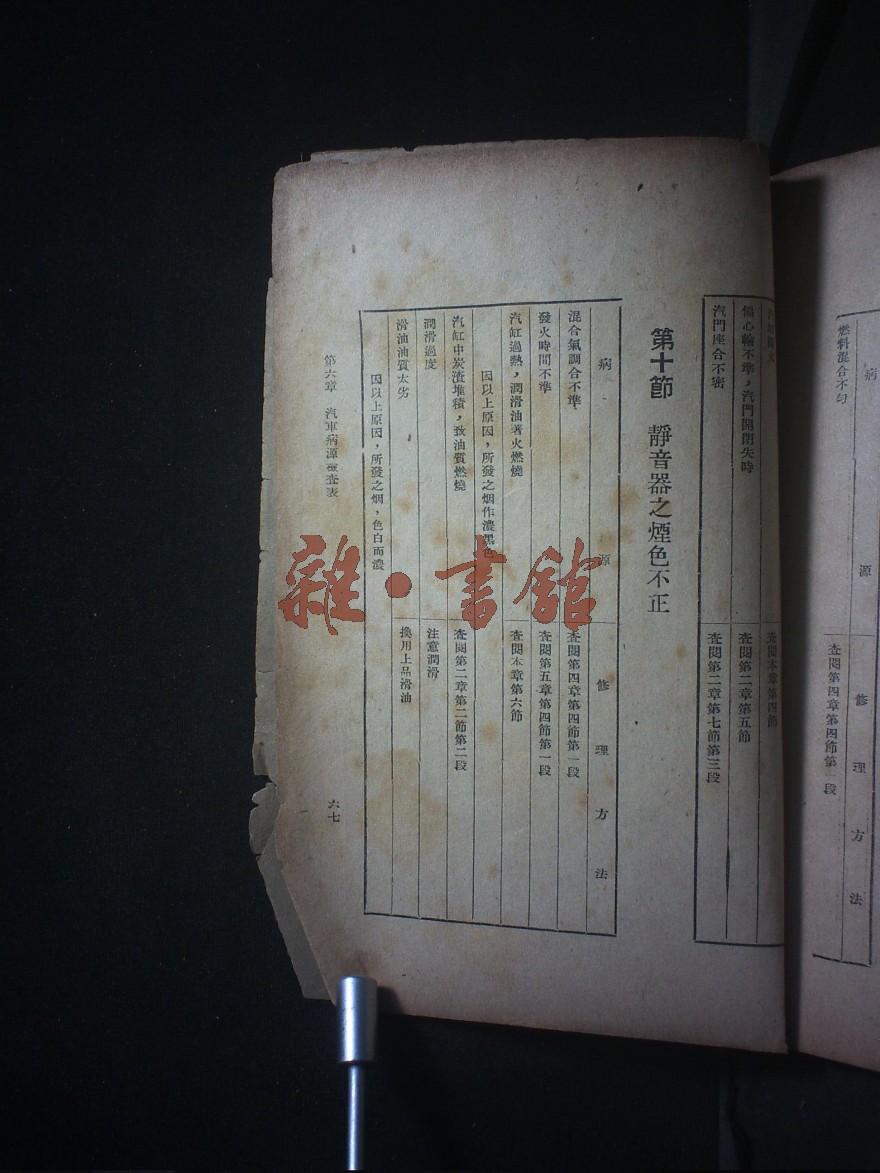 病源
修理方法
燃料混合不匀
查閱第四章第四節第一段
查閱本章第四節
偏心輪不準，汽門開閉失時
查閱第二章第五節
汽門座合不密
查閱第二章第七節第三段
第十節 靜音器之煙色不正
病源
修理方法
混合氣調合不準
查閱第四章第四節第一段
發火時間不準
查閱第五章第四節第一段
汽缸過熱，潤滑油著火燃燒
查閱本章第六節
因以上原因，所發之烟作濃黑色
汽缸中炭渣堆積，致油質燃燒
查閱第二章第二節第二段
潤滑過度
注意潤滑
滑油油質太劣
換用上品滑油
因以上原因，所發之烟，色白而濃
第六章 汽車病源檢查表
六七
雜·書館